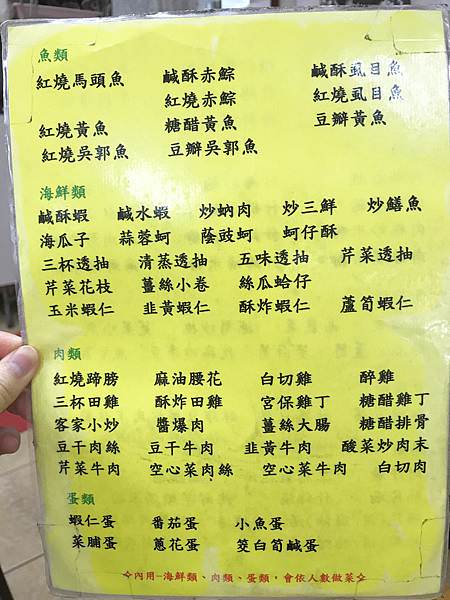 魚類
紅燒馬頭魚 鹹酥赤鯮 鹹酥虱目魚
紅燒赤鯮 紅燒虱目魚
紅燒黃魚 糖醋黃魚 豆瓣黃魚
紅燒吳郭魚 豆瓣吳郭魚
海鮮類
鹹酥蝦 鹹水蝦 炒蚋肉 炒三鮮 炒鱔魚
海瓜子 蒜蓉蚵 蔭豉蚵 蚵仔酥
三杯透抽 清蒸透抽 五味透抽 芹菜透抽
芹菜花枝 薑絲小卷 絲瓜蛤仔
玉米蝦仁 韭黃蝦仁 酥炸蝦仁 蘆筍蝦仁
肉類
紅燒蹄膀 麻油腰花 白切雞 醉雞
三杯田雞 酥炸田雞 宮保雞丁 糖醋雞丁
客家小炒 醬爆肉 薑絲大腸 糖醋排骨
豆干肉絲 豆干牛肉 韭黃牛肉 酸菜炒肉末
芹菜牛肉 空心菜肉絲 空心菜牛肉 白切肉
蛋類
蝦仁蛋 番茄蛋 小魚蛋
菜脯蛋 蔥花蛋 筊白筍鹹蛋
✧內用─海鮮類、肉類、蛋類，會依人數做菜✧